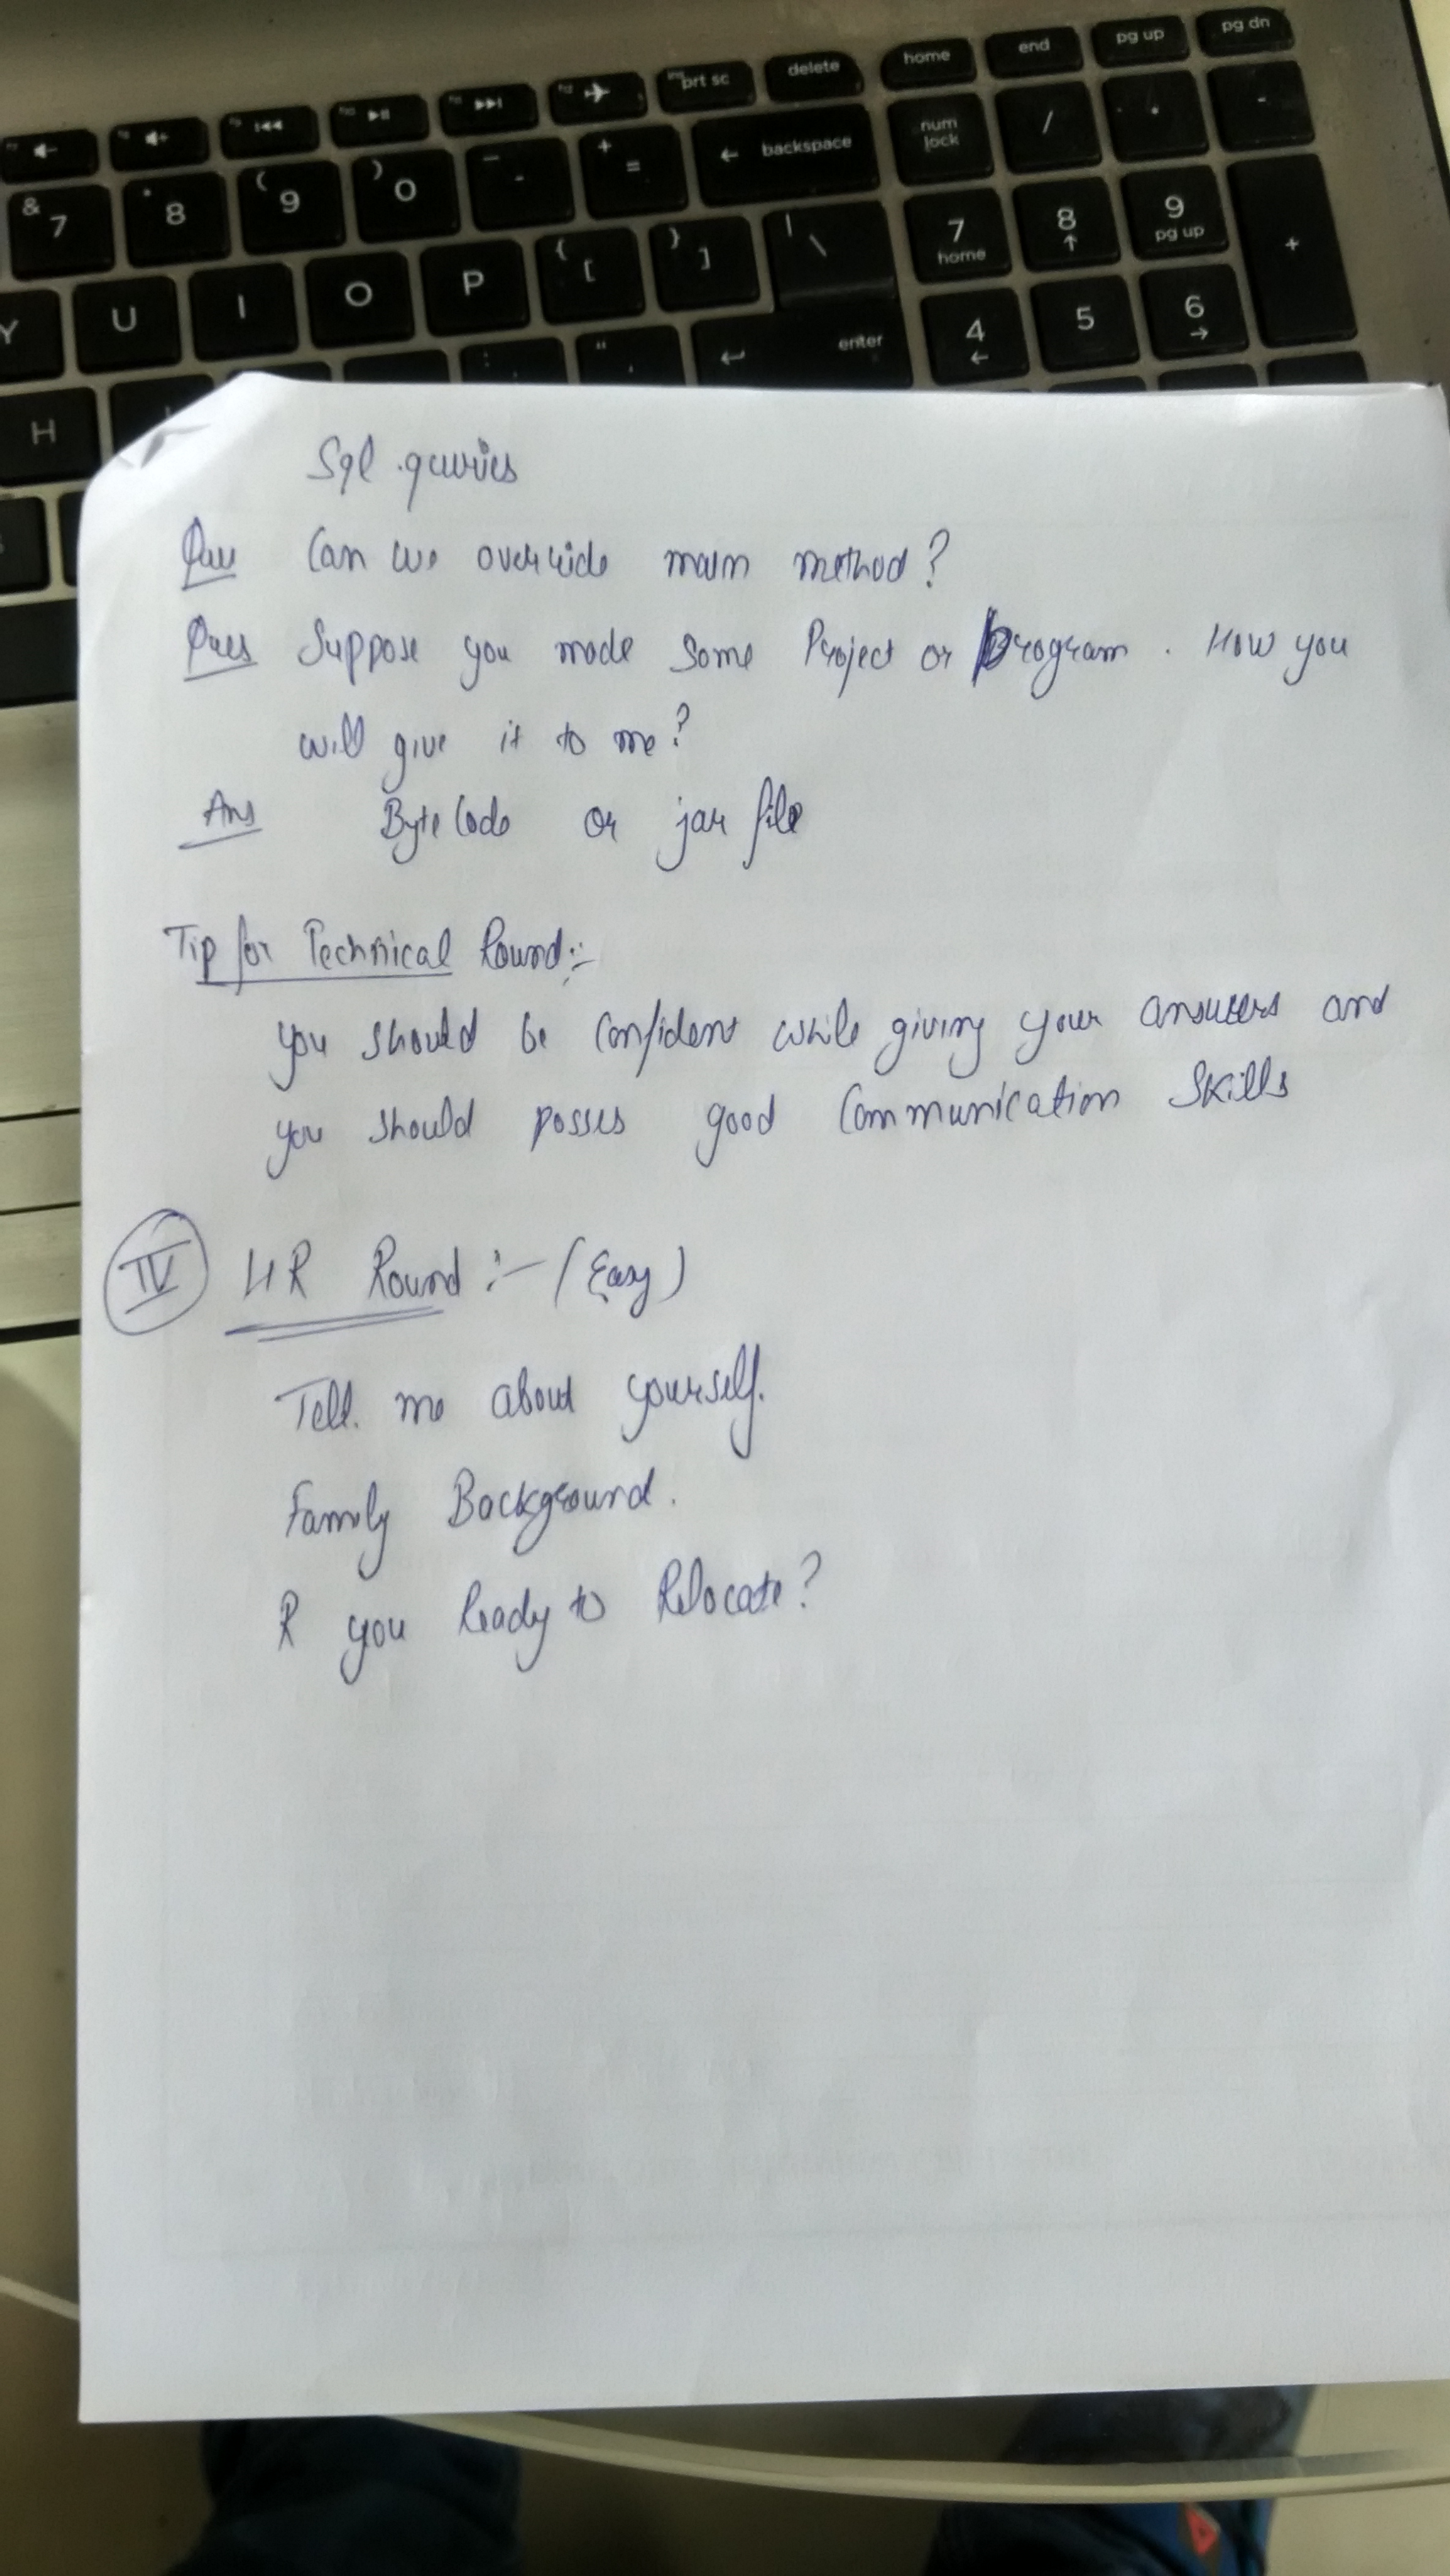 prt sc delete home end pg up pg dn
& 7 * 8 ( 9 ) 0 - + = backspace num lock / * -
Y U I O P { [ } ] | \ 7 home 8 9 pg up +
H : ; " ' enter 4 5 6
Sql queries
Ques Can we override main method?
Ques Suppose you made some Project or program. How you
will give it to me?
Ans Byte Code or jar file
Tip for Technical Round:-
you should be confident while giving your answers and
you should posses good Communication Skills
IV HR Round :- (Easy)
Tell me about yourself.
Family Background.
R you Ready to Relocate?